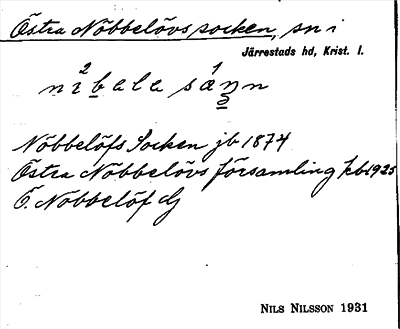 Östra Nöbbelövs socken, sn i
Järrestads hd, Krist. l.
Nöbbelöfs Socken jb 1874
Östra Nöbbelövs församling kb 1925
Ö. Nöbbelöf dj
NILS NILSSON 1931